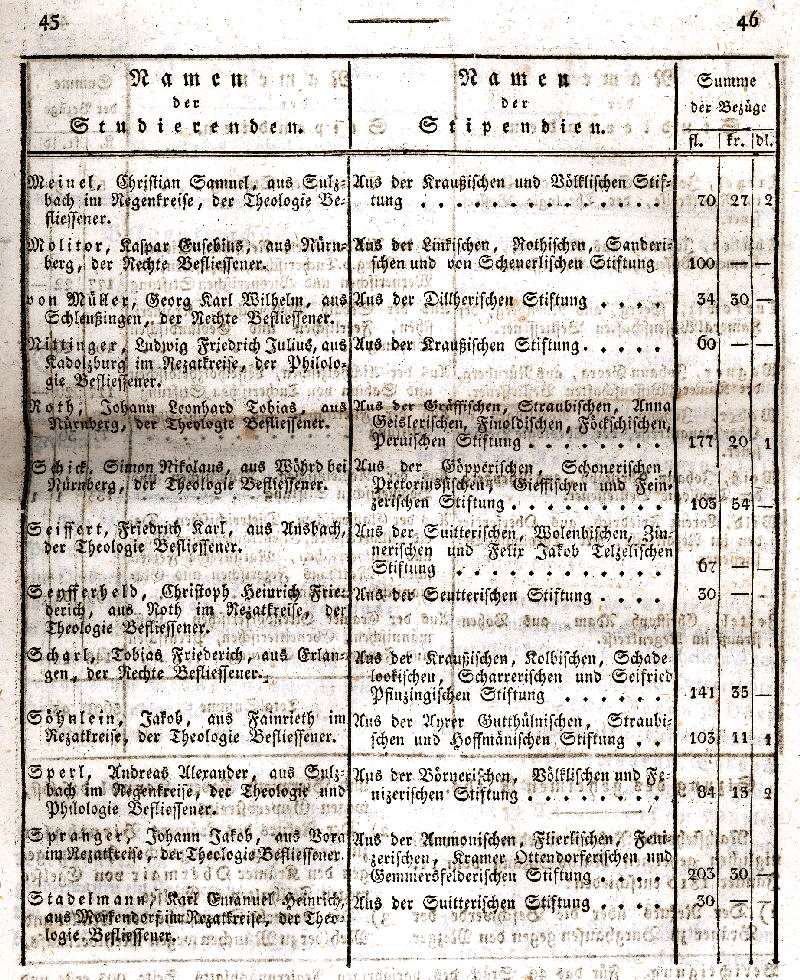 45 46
Namen der Studierenden.
Namen der Stipendien.
Summe der Bezüge
fl. kr. dl.
Meinel, Christian Samuel, aus Sulz-
bach im Regenkreise, der Theologie Be-
fliessener.
Aus der Kraußischen und Völklischen Stif-
tung . . . . . . . . . . . . . 70 27 2
Molitor, Kaspar Eusebius, aus Nürn-
berg, der Rechte Beflissener.
Aus der Linkischen, Rothischen, Sanderi-
schen und von Scheuerlischen Stiftung 100 — —
von Müller, Georg Karl Wilhelm, aus
Schleußingen, der Rechte Befliessener.
Aus der Dillherischen Stiftung . . . . 34 30 —
Nittinger, Ludwig Friedrich Julius, aus
Kadolzburg im Rezatkreise, der Philolo-
gie Befliessener.
Aus der Kraußischen Stiftung . . . . . 60 — —
Roth, Johann Leonhard Tobias, aus
Nürnberg, der Theologie Befliessener.
Aus der Gräffischen, Straubischen, Anna
Geislerischen, Finoldischen, Föckschischen,
Peruischen Stiftung . . . . . . . 177 20 1
Schick, Simon Nikolaus, aus Wöhrd bei
Nürnberg, der Theologie Befliessener.
Aus der Göpperischen, Schonerischen,
Pretoriusischen, Gieffischen und Fein-
zerischen Stiftung . . . . . . . . 105 54 —
Seiffert, Friedrich Karl, aus Ansbach,
der Theologie Befliessener.
Aus der Suitterischen, Wolenbischen, Zin-
nerischen und Felix Jakob Telzelischen
Stiftung . . . . . . . . . . . 67 — —
Seyfferheld, Christoph Heinrich Frie-
derich, aus Roth im Rezatkreise, der
Theologie Befliessener.
Aus der Seutterischen Stiftung . . . . 30 — —
Scharl, Tobias Friederich, aus Erlan-
gen, der Rechte Befliessener.
Aus der Kraußischen, Kolbischen, Schade
lookischen, Scharrerischen und Seifried
Pfinzingischen Stiftung . . . . . . 141 35 —
Söhnlein, Jakob, aus Fainrieth im
Rezatkreise, der Theologie Befliessener.
Aus der Ayrer Gutthülnischen, Straubi-
schen und Hoffmänischen Stiftung . . 103 11 1
Sperl, Andreas Alexander, aus Sulz-
bach im Regenkreise, der Theologie und
Philologie Befliessener.
Aus der Börnerischen, Völklischen und Fe-
nizerischen Stiftung . . . . . . . . 84 13 2
Spranger, Johann Jakob, aus Vora
im Rezatkreise, der Theologie Befliessener
Aus der Ammonischen, Flierlischen, Feni-
zerischen, Kramer Ottendorferischen und
Gemmersfelderischen Stiftung . . . . 203 30 —
Stadelmann, Karl Emanuel Heinrich,
aus Merkendorf im Rezatkreise, der Theo-
logie Befliessener.
Aus der Suitterischen Stiftung . . . . 30 — —